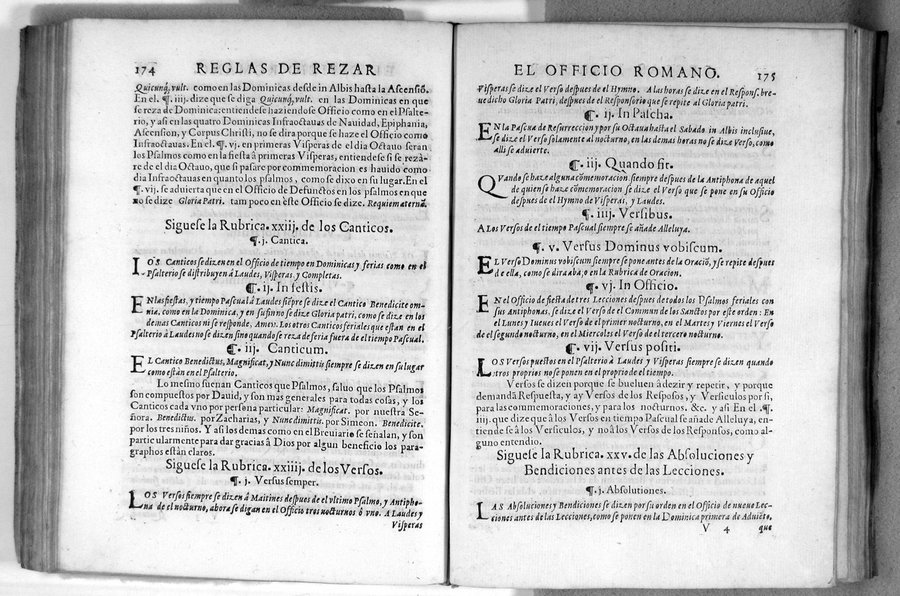 174 REGLAS DE REZAR
Quicunq̃, vult. como en las Dominicas desde in Albis hasta la Ascensiõ.
En el. ¶. iij. dize que se diga Quicunq̃, vult. en las Dominicas en que
se reza de Dominica: entiendese haziendose Officio como en el Psalte-
rio, y asi en las quatro Dominicas Infraoctauas de Nauidad, Epiphania,
Ascension, y Corpus Christi, no se dira porque se haze el Officio como
Infraoctauas. En el. ¶. vj. en primeras Visperas de el dia Octauo seran
los Psalmos como en la fiesta â primeras Visperas, entiendese si se rezâ-
re de el dia Octauo, que si pasare por commemoracion es hauido como
dia Infraoctauas en quanto los psalmos, como se dixo en su lugar. En el
¶. vij. se aduierta que en el Officio de Defunctos en los psalmos en que
no se dize Gloria Patri. tam poco en este Officio se dize. Requiem æternã.
Siguese la Rubrica. xxiij. de los Canticos.
¶. j. Cantica.
LOS Canticos se dizen en el Officio de tiempo en Dominicas y ferias como en el
Psalterio se distribuyen â Laudes, Visperas y Completas.
¶. ij. In festis.
EN las fiestas, y tiempo Pascual â Laudes siẽpre se dize el Cantico Benedicite om-
nia, como en la Dominica, y en su fin no se dize Gloria patri, como se dize en los
demas Canticos ni se responde, Amen. Los otros Canticos feriales que estan en el
Psalterio â Laudes no se dizen sino quando se reza de feria fuera de el tiempo Pascual.
¶. iij. Canticum.
EL Cantico Benedictus, Magnificat, y Nunc dimittis siempre se dizen en su lugar
como estàn en el Psalterio.
Lo mesmo suenan Canticos que Psalmos, saluo que los Psalmos
son compuestos por Dauid, y son mas generales para todas cosas, y los
Canticos cada vno por persona particular: Magnificat. por nuestra Se-
ñora. Benedictus. por Zacharias, y Nunc dimittis. por Simeon. Benedicite.
por los tres niños. Y asi los demas como en el Breuiario se señalan, y son
particularmente para dar gracias â Dios por algun beneficio los para-
graphos estàn claros.
Siguese la Rubrica. xxiiij. de los Versos.
¶. j. Versus semper.
LOS Versos siempre se dizen â Maitines despues de el vltimo Psalmo, y Antipho-
na de el nocturno, ahora se digan en el Officio tres nocturnos ô vno. A Laudes y
Visperas
EL OFFICIO ROMANO. 175
Visperas se dize el Verso despues de el Hymno. A las horas se dize en el Respons. bre-
ue dicho Gloria Patri, despues de el Responsorio que se repite al Gloria patri.
¶. ij. In Pascha.
EN la Pascua de Resurreccion y por su Octaua hasta el Sabado in Albis inclusiue,
se dize el Verso solamente al nocturno, en las demas horas no se dize Verso, como
alli se aduierte.
¶. iij. Quando fit.
QVando se haze alguna cõmemoracion siempre despues de la Antiphona de aquel
de quien se haze cõmemoracion se dize el Verso que se pone en su Officio
despues de el Hymno de Visperas, y Laudes.
¶. iiij. Versibus.
A Los Versos de el tiempo Pascual siempre se añade Alleluya.
¶. v. Versus Dominus vobiscum.
EL Verso Dominus vobiscum siempre se pone antes de la Oraciõ, y se repite despues
de ella, como se dira abaxo en la Rubrica de Oracion.
¶. vj. In Officio.
EN el Officio de fiesta de tres Lecciones despues de todos los Psalmos feriales con
sus Antiphonas, se dize el Verso de el Commun de los Sanctos por este orden: En
el Lunes y Iueues el Verso de el primer nocturno, en el Martes y Viernes el Verso
de el segundo nocturno, en el Miercoles el Verso de el tercero nocturno.
¶. vij. Versus positi.
LOS Versos puestos en el Psalterio â Laudes y Visperas siempre se dizen quando
otros proprios no se ponen en el proprio de el tiempo.
Versos se dizen porque se bueluen â dezir y repetir, y porque
demandã Respuesta, y ay Versos de los Resposos, y Versiculos por si,
para las commemoraciones, y para los nocturnos. &c. y asi En el .¶.
iiij. que dize que â los Versos en tiempo Pascual se añade Alleluya, en-
tiende se â los Versiculos, y no â los Versos de los Responsos, como al-
guno entendio.
Siguese la Rubrica. xxv. de las Absoluciones y
Bendiciones antes de las Lecciones.
¶. j. Absolutiones.
LAS Absoluciones y Bendiciones se dizen por su orden en el Officio de nueue Lec-
ciones antes de las Lecciones, como se ponen en la Dominica primera de Aduiẽto,
V 4 que